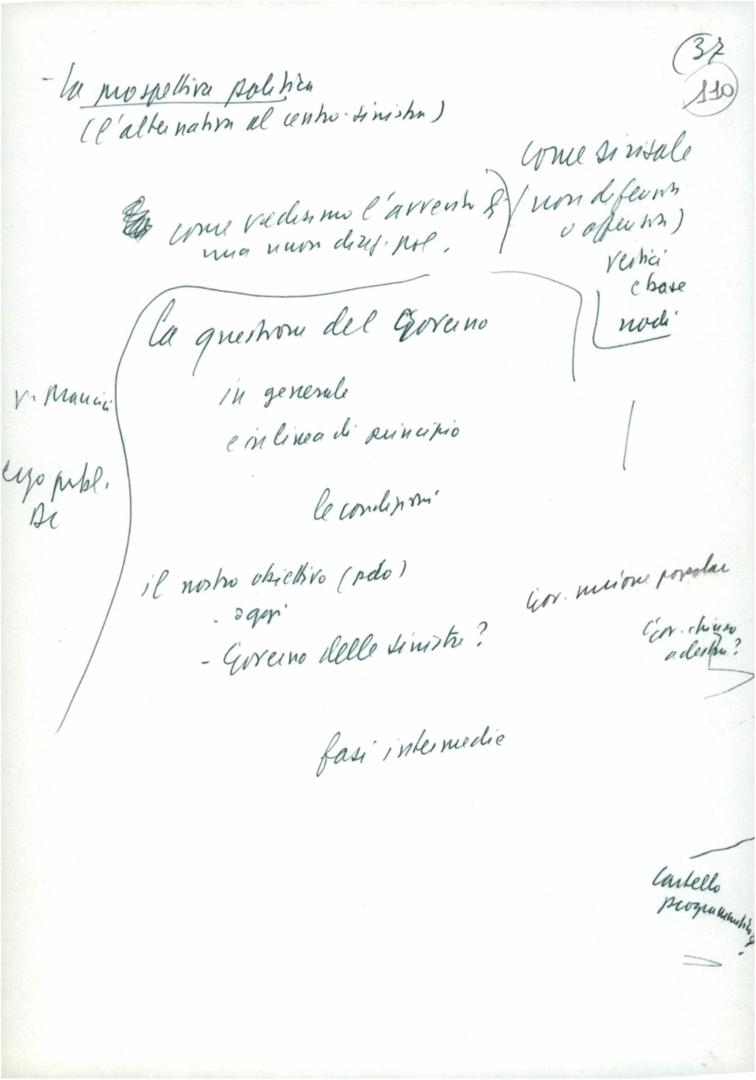 37
110
- la prospettiva politica
(l'alternativa al centro-sinistra)
come si risale
(non difensiva
o offensiva)
vertici
e base
nodi
come vediamo l'avvento di
una nuova direz. pol.
La questione del Governo
in generale
e in linea di principio
v. Mancini
pubbl.
DC
le condizioni
il nostro obiettivo (pdo)
- oggi
- Governo delle sinistre?
Gov. unione popolare
Gov. chiuso
a destra?
fasi intermedie
Cartello
programmatico?